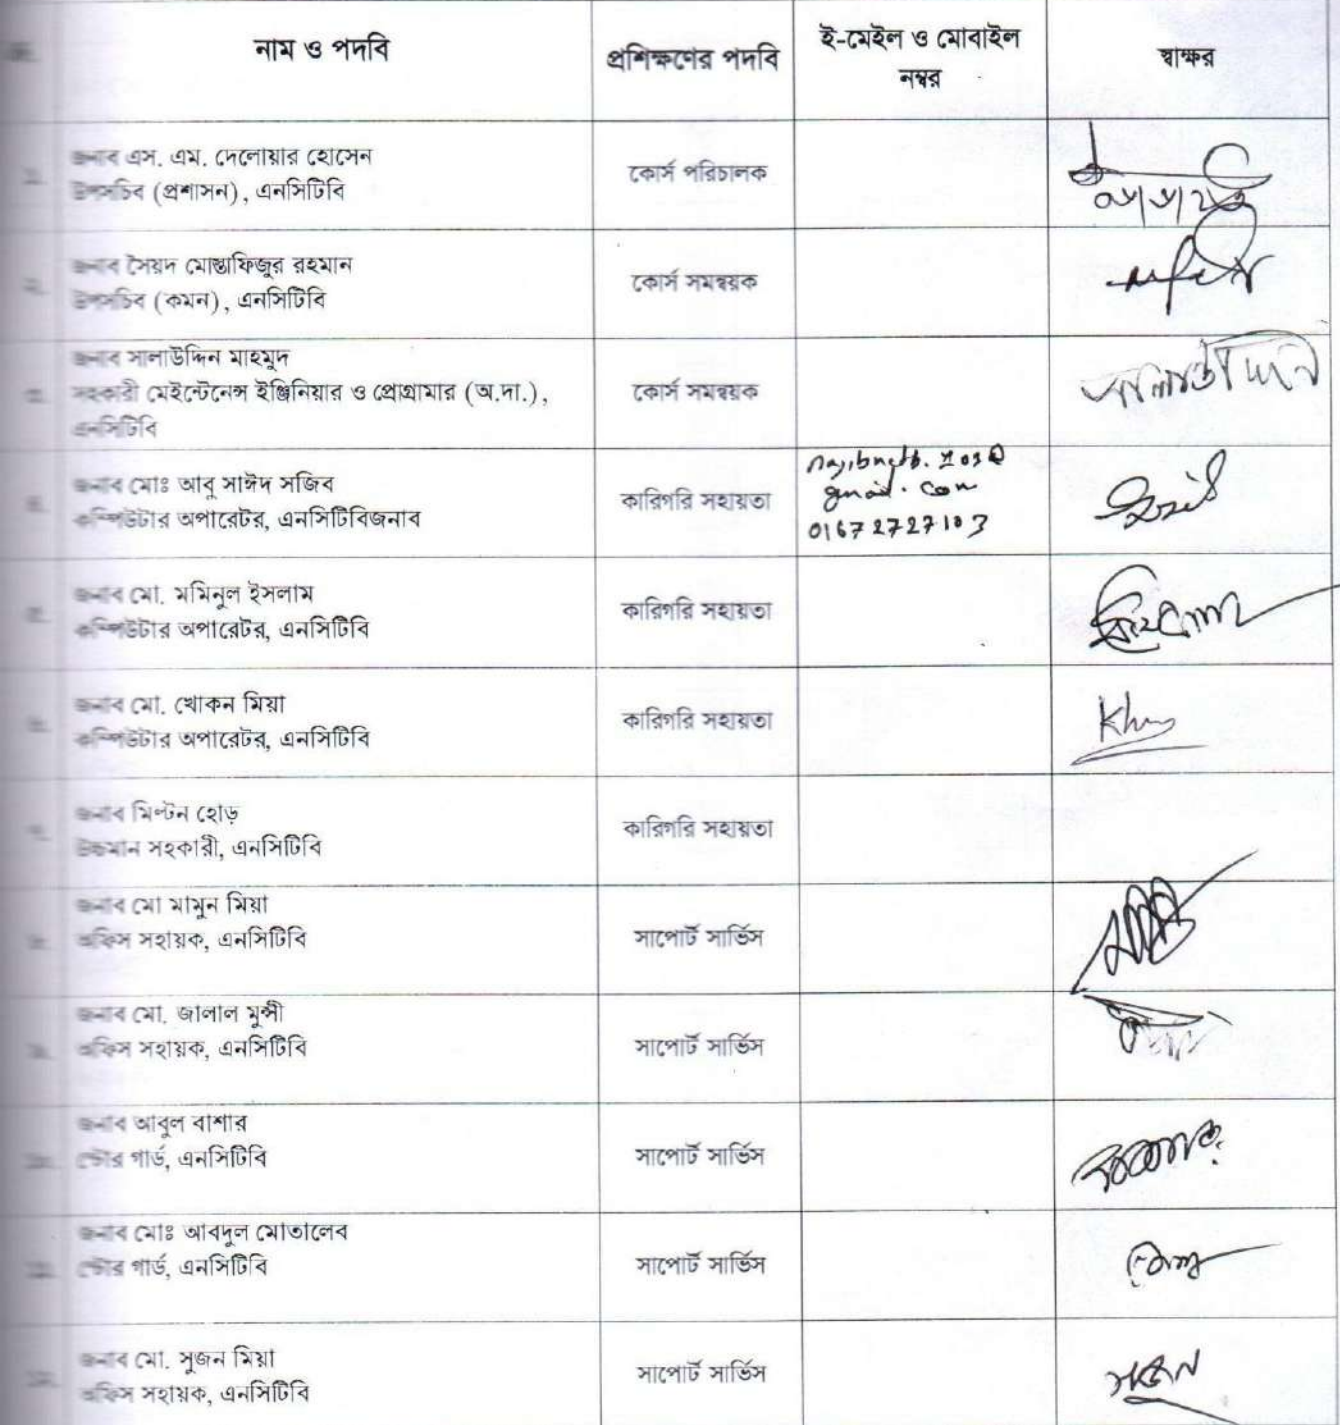 নাম ও পদবি
প্রশিক্ষণের পদবি
ই-মেইল ও মোবাইল
নম্বর
স্বাক্ষর
জনাব এস. এম. দেলোয়ার হোসেন
উপসচিব (প্রশাসন), এনসিটিবি
কোর্স পরিচালক
জনাব সৈয়দ মোস্তাফিজুর রহমান
উপসচিব (কমন), এনসিটিবি
কোর্স সমন্বয়ক
জনাব সালাউদ্দিন মাহমুদ
সহকারী মেইন্টেনেন্স ইঞ্জিনিয়ার ও প্রোগ্রামার (অ.দা.),
এনসিটিবি
কোর্স সমন্বয়ক
সালাউদ্দিন
জনাব মোঃ আবু সাঈদ সজিব
কম্পিউটার অপারেটর, এনসিটিবিজনাব
কারিগরি সহায়তা
gmail.com
01672727103
জনাব মো. মমিনুল ইসলাম
কম্পিউটার অপারেটর, এনসিটিবি
কারিগরি সহায়তা
জনাব মো. খোকন মিয়া
কম্পিউটার অপারেটর, এনসিটিবি
কারিগরি সহায়তা
জনাব মিল্টন হোড়
উচ্চমান সহকারী, এনসিটিবি
কারিগরি সহায়তা
জনাব মো মামুন মিয়া
অফিস সহায়ক, এনসিটিবি
সাপোর্ট সার্ভিস
জনাব মো. জালাল মুন্সী
অফিস সহায়ক, এনসিটিবি
সাপোর্ট সার্ভিস
জনাব আবুল বাশার
স্টোর গার্ড, এনসিটিবি
সাপোর্ট সার্ভিস
জনাব মোঃ আবদুল মোতালেব
স্টোর গার্ড, এনসিটিবি
সাপোর্ট সার্ভিস
জনাব মো. সুজন মিয়া
অফিস সহায়ক, এনসিটিবি
সাপোর্ট সার্ভিস
সুজন